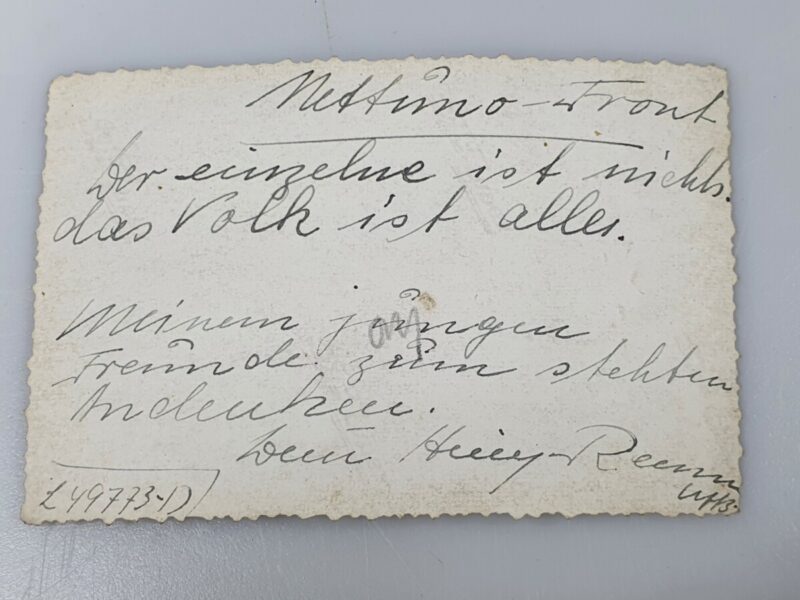 Nettuno-Front
Der einzelne ist nichts.
das Volk ist alles.
Meinem jungen
Freunde zum stehten
Andenken.
Dein
L 49773-D